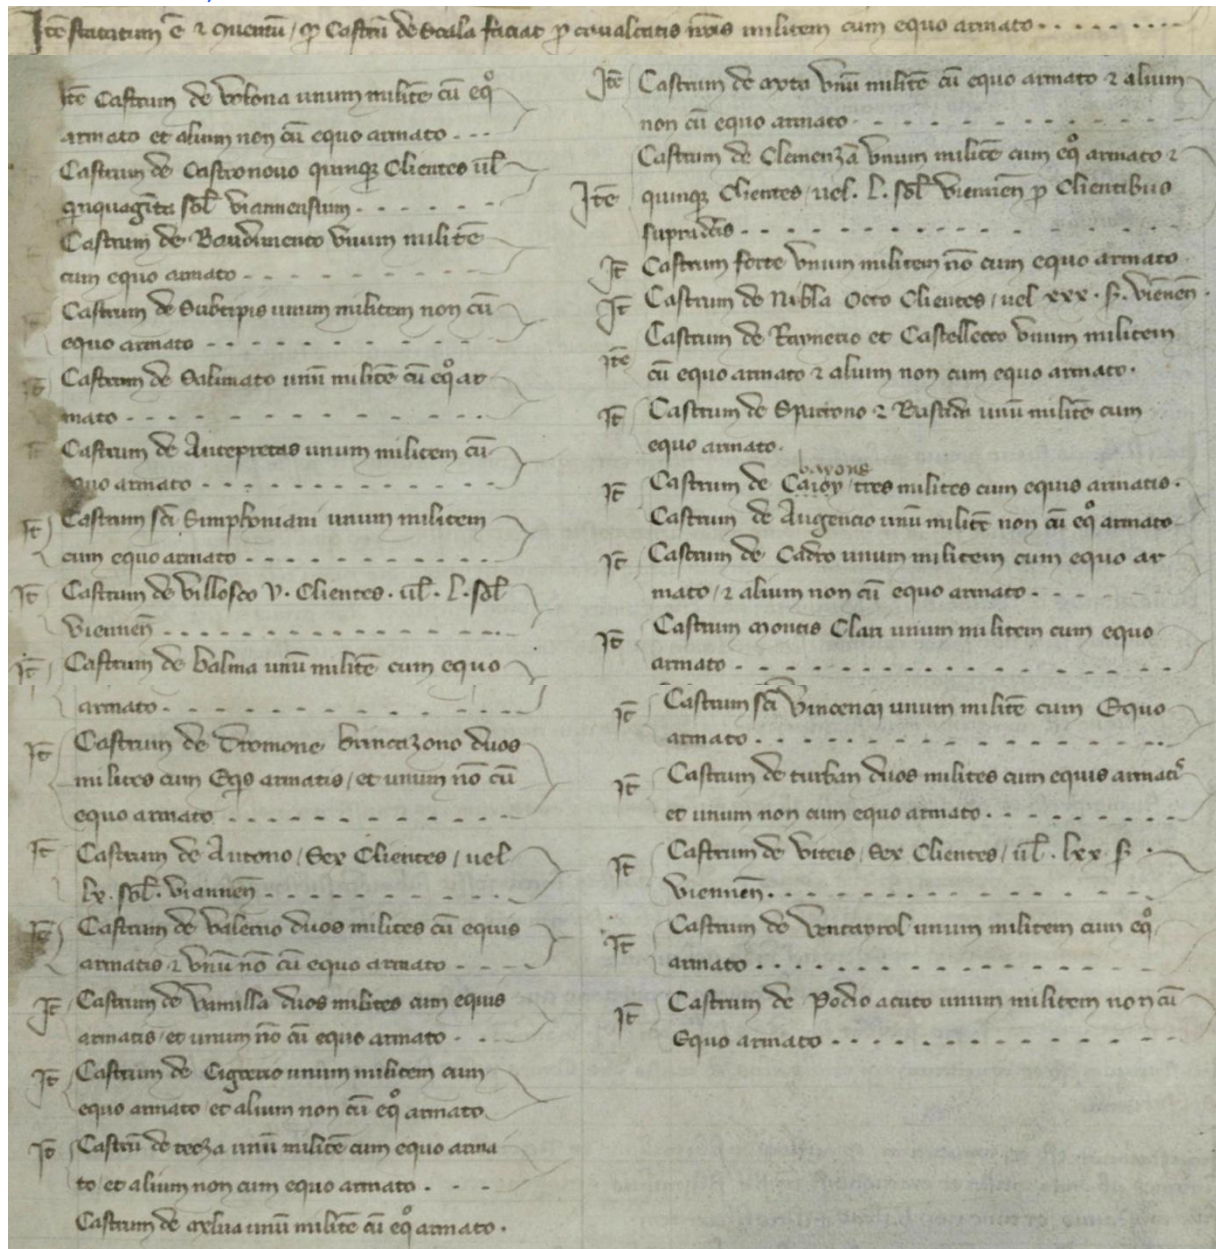 Itē statutum ē ⁊ conuentū, ꝙ Castrū de Scala faciat ꝓ caualcatis nr̄is militem cum equo armato
Itē Castrum de Volona unum militē cū eqͦ
armato et alium non cū equo armato
Castrum de Castronouo quinqꝫ Clientes ūl
quinquaginta sol̄ Viannensium
Castrum de Baudimento Vnum militē
cum equo armato
Castrum de Subripis unum militem non cū
equo armato
It̄ Castrum de Salinato unū militē cū eqͦ ar
mato
It̄ Castrum de Antepretas unum militem cū
equo armato
It̄ Castrum sc̄i Simphoniani unum militem
cum equo armato
It̄ Castrum de Villosco V. Clientes. ūl. L. sol̄
Viennen̄
It̄ Castrum de balma unū militē cum equo
armato
It̄ Castrum de Dromone brincazono duos
milites cum Eqis armatis, et unum nō cū
equo armato
It̄ Castrum de Autono, Sex Clientes, uel
lx. sol̄. Viannen̄
It̄ Castrum de Valerno duos milites cū equis
armatis ⁊ Vnū nō cū equo armato
It̄ Castrum de Vamilla duos milites cum equis
armatis, et unum nō cū equo armato
It̄ Castrum de Cigoerio unum militem cum
equo armato et alium non cū eqͦ armato
It̄ Castrū de teeza unū militē cum equo arma
to, et alium non cum equo armato
Castrum de melua unū militē cū eqͦ armato.
Itē Castrum de mota Vnū militē cū equo armato ⁊ alium
non cū equo armato
Castrum de Clemenzā Vnum militē cum eqͦ armato ⁊
Itē quinqꝫ Clientes, uel. L. sol̄ Viennen̄ ꝓ Clientibus
supradc̄is
It̄ Castrum forte Vnum militem nō cum equo armato
It̄ Castrum de Nibla Octo Clientes, uel xxx. s̄. Viēnen̄.
Castrum de Raynerio et Castelleto Vnum militem
Itē cū equo armato ⁊ alium non cum equo armato.
It̄ Castrum de Spinono ⁊ Bastida unū militē cum
equo armato.
bayons
It̄ Castrum de Caioy, tres milites cum equis armatis.
Castrum de Augencio unū militē non cū eqͦ armato
It̄ Castrum de Cadro unum militem cum equo ar
mato, ⁊ alium non cū equo armato
It̄ Castrum montis Clari unum militem cum equo
armato
It̄ Castrum sc̄i Vincencij unum militē cum Equo
armato
It̄ Castrum de turban duos milites cum equis armatis
et unum non cum equo armato
It̄ Castrum de Viteis, Sex Clientes, ūl. lxx s̄.
Viennen̄
It̄ Castrum de Ventayrol unum militem cum eqͦ
armato
It̄ Castrum de Podio acuto unum militem non cū
Equo armato